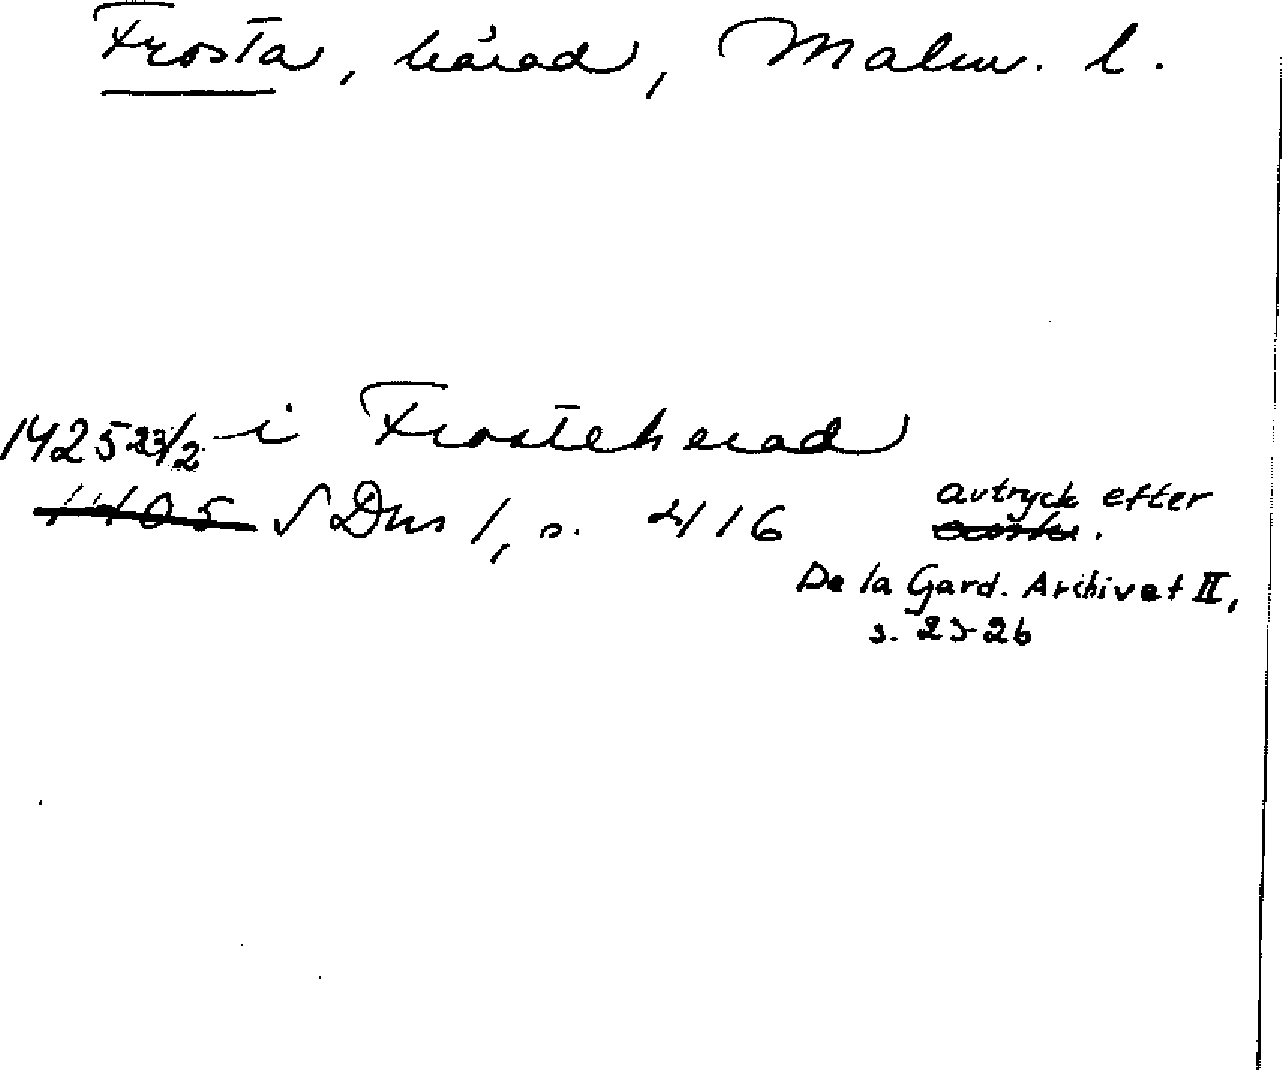 Frosta, härad, Malm. l.
1425 23/2 i Frosteherad
1405 SDns 1, s. 416 avtryck efter
De la Gard. Archivet II,
s. 25-26